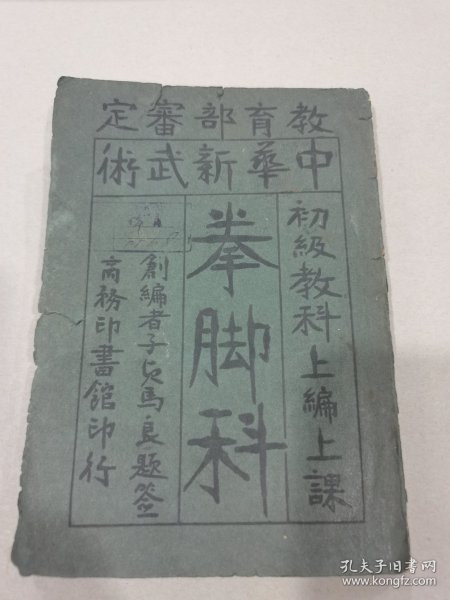 教育部審定
中華新武術
初級教科上編上課
拳脚科
創編者子貞馬良題签
商務印書館印行
孔夫子旧书网
www.kongfz.com